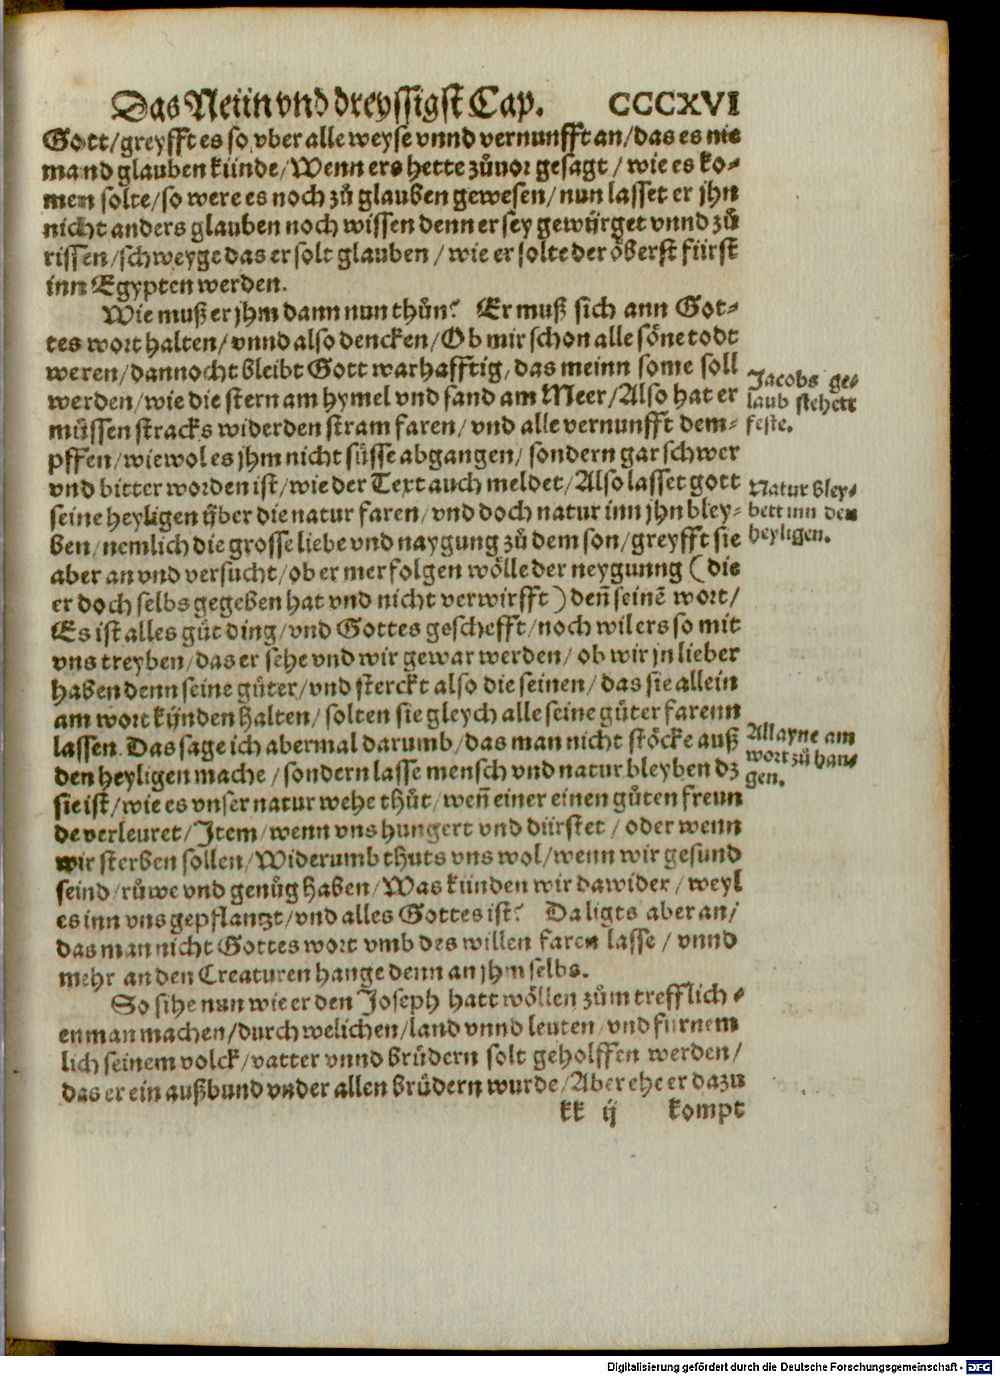 Das Neün vnd dreyssigst Cap. CCCXVI
Gott/greyfft es so vber alle weyse vnnd vernunfft an/das es nie
mand glauben künde/Wenn ers hette zůuor gesagt/wie es ko-
men solte/so were es noch zů glauben gewesen/nun lasset er jhn
nicht anders glauben noch wissen denn er sey gewürget vnnd zů
rissen/schweyge das er solt glauben/wie er solte der öberst fürst
inn Egypten werden.
Wie muß er jhm dann nun thůn? Er muß sich ann Got-
tes wort halten/vnnd also dencken/Ob mir schon alle söne todt
weren/dannocht bleibt Gott warhafftig/das meinn some soll
werden/wie die stern am hymel vnd sand am Meer/Also hat er
müssen stracks wider den stram faren/vnd alle vernunfft dem-
pffen/wiewol es jhm nicht süsse abgangen/sondern gar schwer
vnd bitter worden ist/wie der Text auch meldet/Also lasset gott
seine heyligen über die natur faren/vnd doch natur inn jhn bley-
ben/nemlich die grosse liebe vnd naygung zů dem son/greyfft sie
aber an vnd versucht/ob er mer folgen wölle der neygunng (die
er doch selbs gegeben hat vnd nicht verwirfft) deñ seinē wort/
Es ist alles gůt ding/vnd Gottes geschefft/noch wil ers so mit
vns treyben/das er sehe vnd wir gewar werden/ob wir jn lieber
haben denn seine güter/vnd sterckt also die seinen/das sie allein
am wort künden halten/solten sie gleych alle seine güter farenn
lassen. Das sage ich abermal darumb/das man nicht stöcke auß
den heyligen mache/sondern lasse mensch vnd natur bleyben dz
sie ist/wie es vnser natur wehe thůt/weñ einer einen gůten freun
de verleuret/Item/wenn vns hungert vnd dürstet/oder wenn
wir sterben sollen/Widerumb thuts vns wol/wenn wir gesund
seind/růwe vnd genůg haben/Was künden wir dawider/weyl
es inn vns gepflantzt/vnd alles Gottes ist? Da ligts aber an/
das man nicht Gottes wort vmb des willen faren lasse/vnnd
mehr an den Creaturen hange denn an jhm selbs.
So sihe nun wie er den Joseph hatt wöllen zům trefflich-
en man machen/durch welichen/land vnnd leuten/vnd fürnem
lich seinem volck/vatter vnnd brüdern solt geholffen werden/
das er ein außbund vnder allen brüdern wurde/Aber ehe er dazu
kk ij kompt
Jacobs ge-
laub stehett
feste.
Natur bley-
bett inn den
heyligen.
Allayne am
wort zů han-
gen.
Digitalisierung gefördert durch die Deutsche Forschungsgemeinschaft - DFG